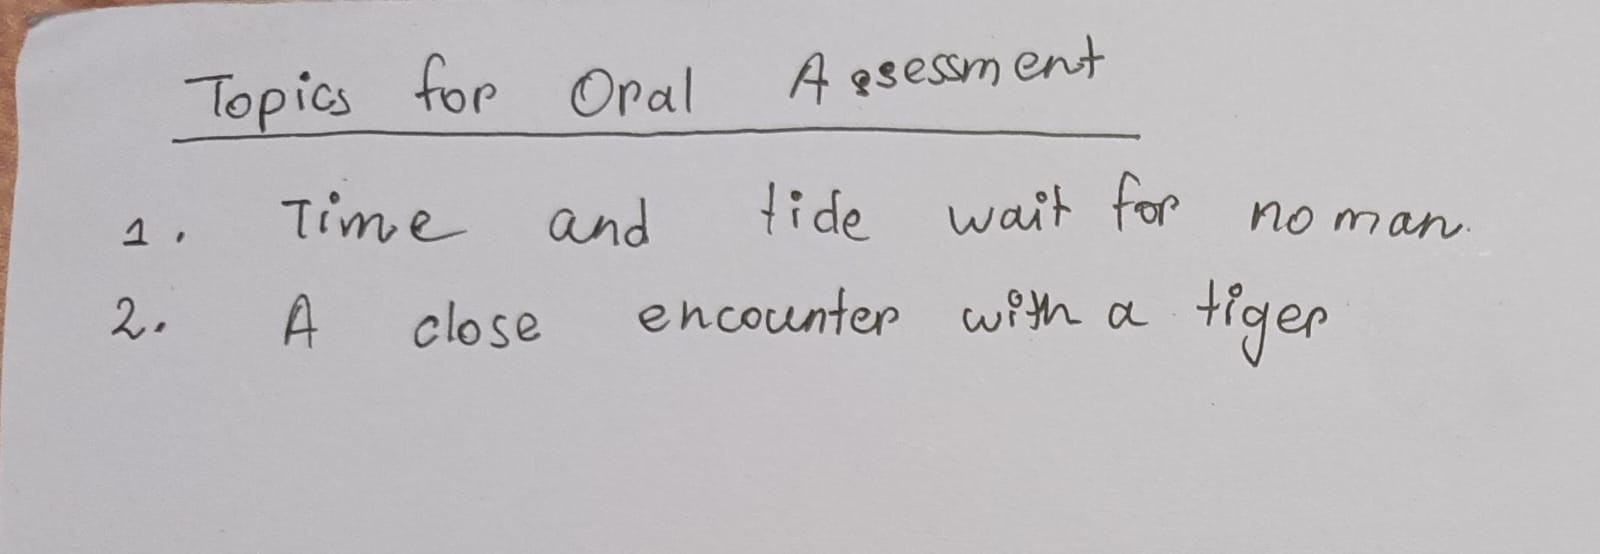 Topics for Oral Assessment
1. Time and tide wait for no man.
2. A close encounter with a tiger